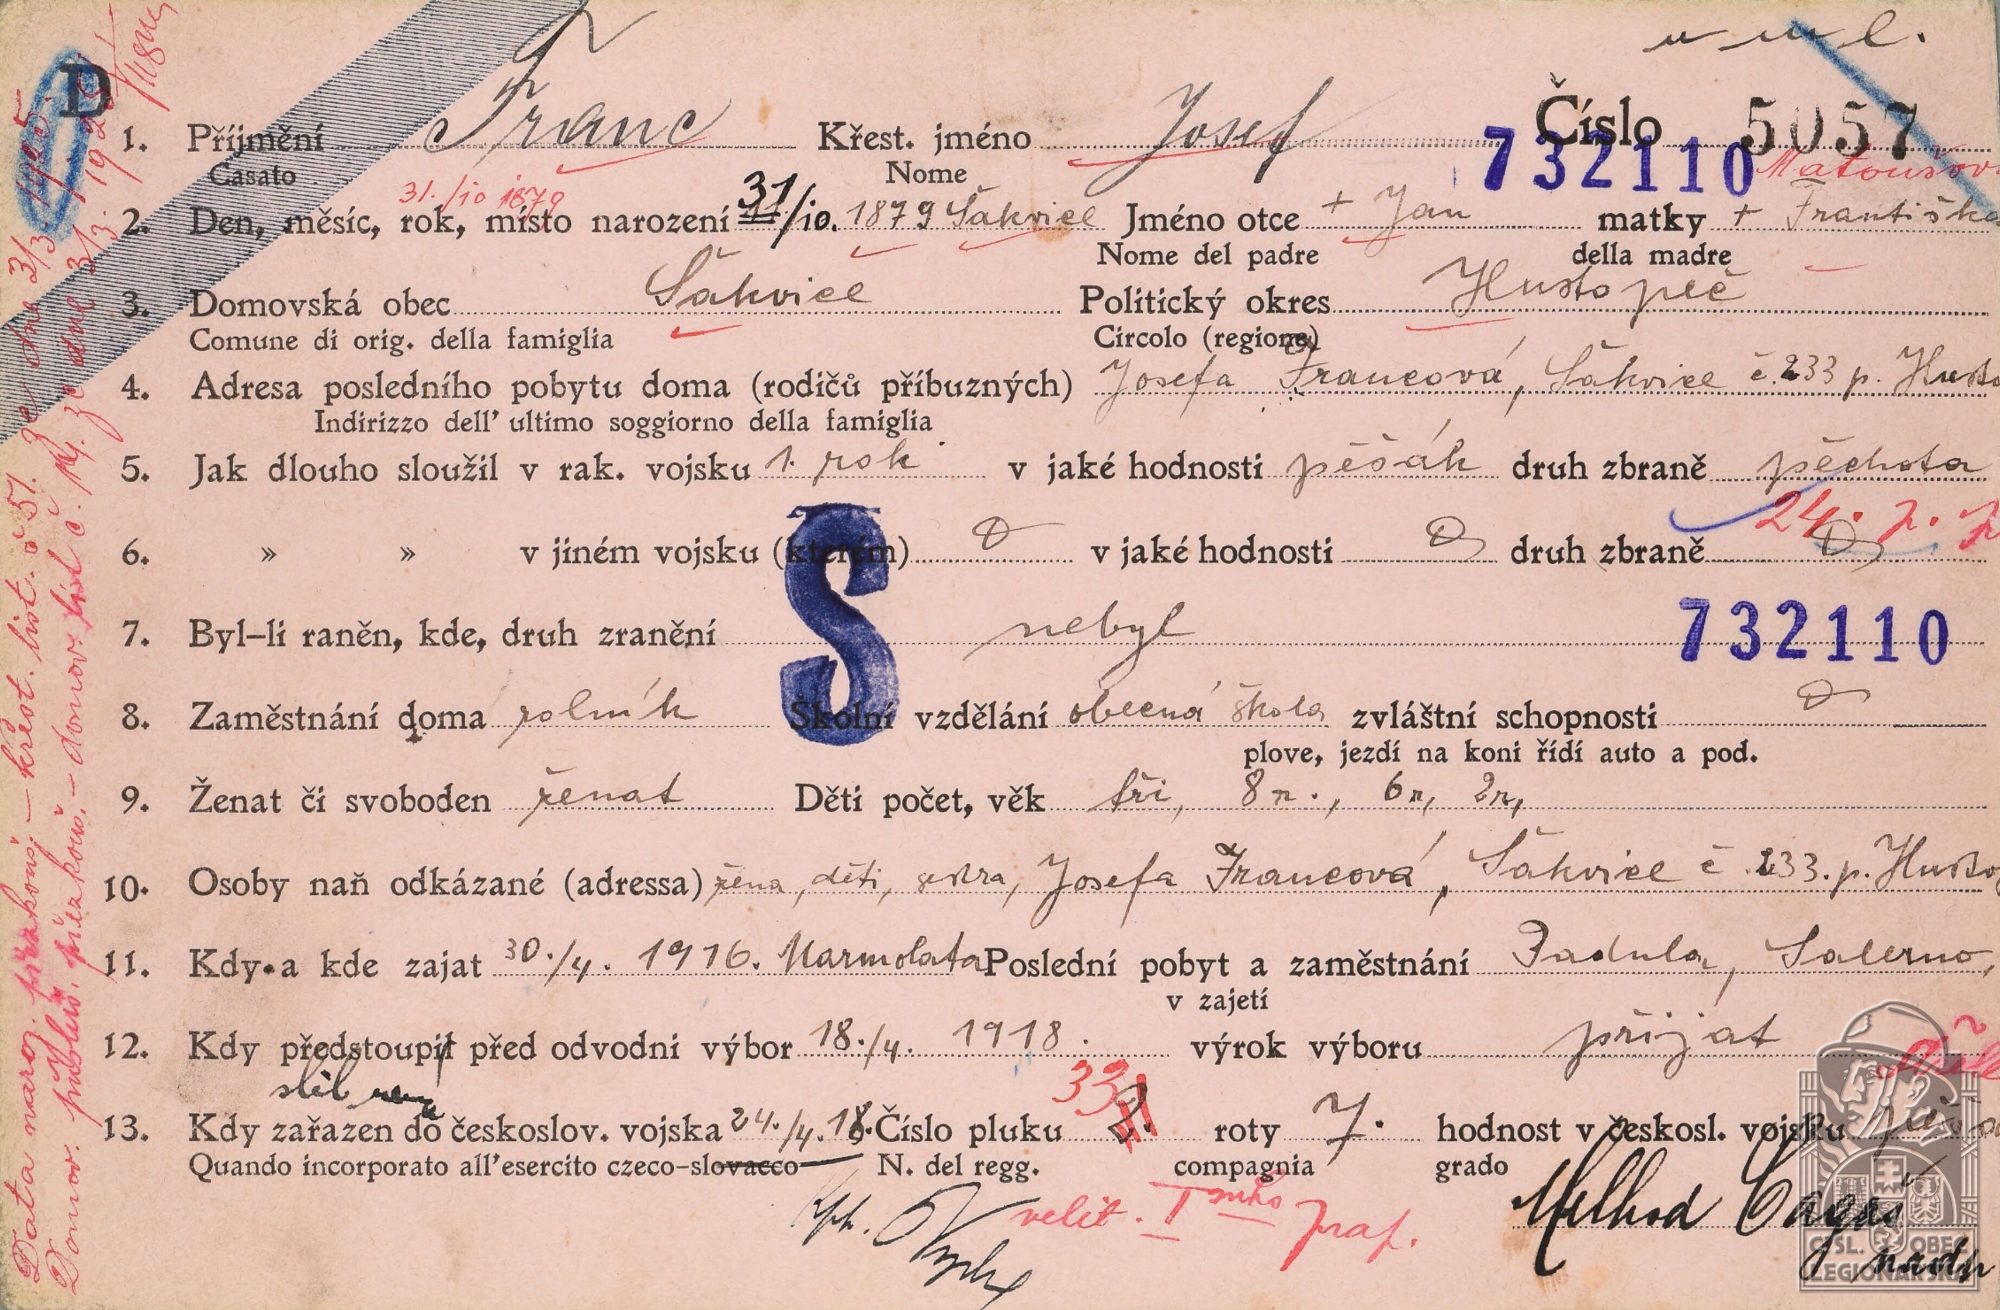 D
Číslo 5057
1. Příjmení Franc Křest. jméno Josef 732110
Casato Nome Matoušov
31./10 1879
2. Den, měsíc, rok, místo narození 31/10. 1879 Šakvice Jméno otce + Jan matky + Františka
Nome del padre della madre
3. Domovská obec Šakvice Politický okres Hustopeč
Comune di orig. della famiglia Circolo (regione)
4. Adresa posledního pobytu doma (rodičů příbuzných) Josefa Francová, Šakvice č. 233 p. Husto
Indirizzo dell' ultimo soggiorno della famiglia
5. Jak dlouho sloužil v rak. vojsku 1. rok v jaké hodnosti pěšák druh zbraně pěchota
24. p. p
6. » » v jiném vojsku (kterém) v jaké hodnosti druh zbraně
7. Byl-li raněn, kde, druh zranění nebyl 732110
S
8. Zaměstnání doma rolník Školní vzdělání obecná škola zvláštní schopnosti
plove, jezdí na koni řídí auto a pod.
9. Ženat či svoboden ženat Děti počet, věk tři, 8 r., 6 r, 2 r,
10. Osoby naň odkázané (adressa) žena, děti, sestra, Josefa Francová, Šakvice č. 233. p. Husto
11. Kdy a kde zajat 30./4. 1916. Marmolata Poslední pobyt a zaměstnání Padula, Salerno,
v zajetí
12. Kdy předstoupil před odvodní výbor 18./4. 1918. výrok výboru přijat
slib
33
13. Kdy zařazen do českoslov. vojska 24./4. 18. Číslo pluku roty 7. hodnost v českosl. vojsku
Quando incorporato all'esercito czeco-slovacco N. del regg. compagnia grado
velit. praf.
Method
ČSL. OBEC
LEGIONÁŘSKÁ